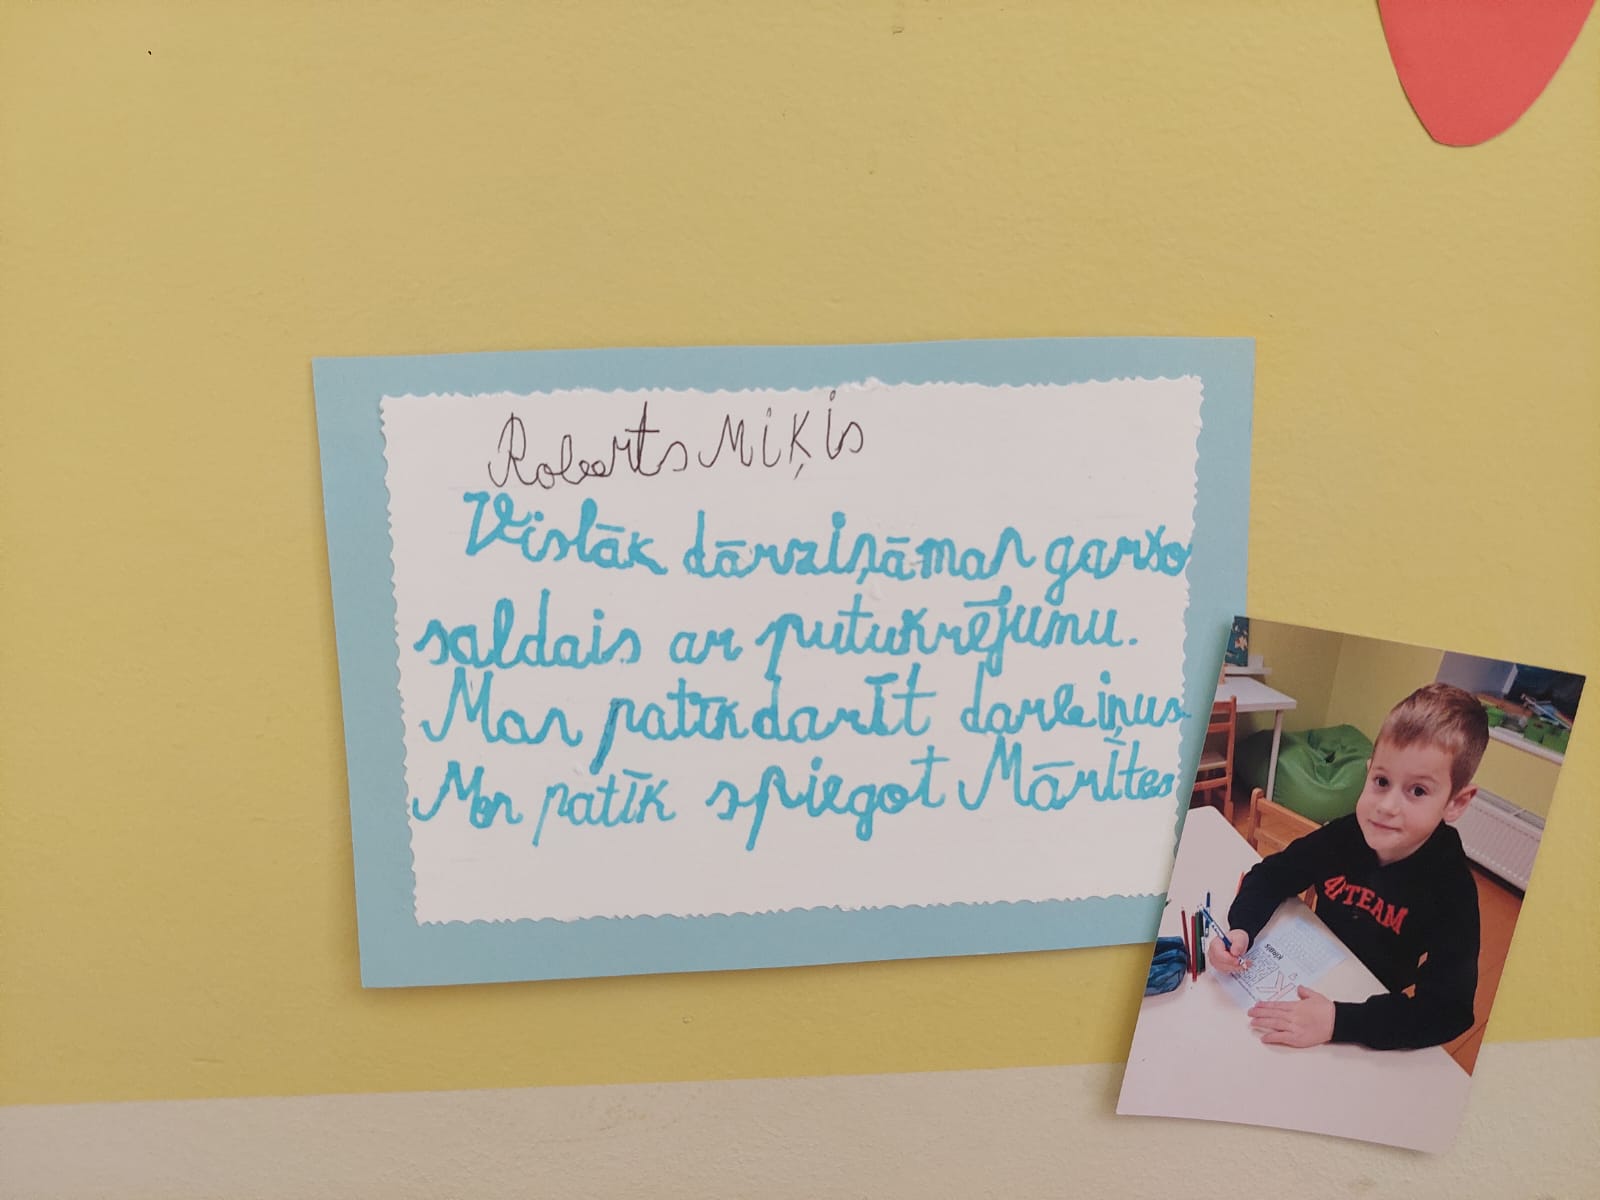 Roberts Miķis
Vislāk dārziņā man garšo
saldais ar putukrējumu.
Man patīk darīt darbiņus.
Man patīk spiegot Mārītes
4F TEAM